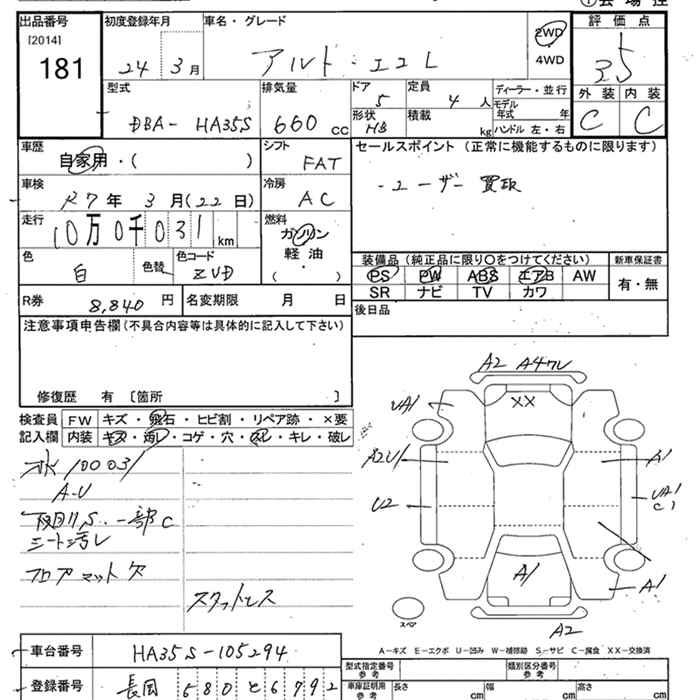 出品番号 初度登録年月 車名・グレード 評価点
[2014]
181 24年 3月 アルト・エコL 2WD・4WD 3.5
型式 排気量 ドア 定員 ディーラー・並行 外装 内装
DBA- HA35S 660 cc 5 4人 モデル年式 年 C C
形状 積載
HB kg ハンドル 左・右
車歴 シフト セールスポイント (正常に機能するものに限ります)
自家用・( ) FAT
車検 冷房 ・ユーザー買取
R7年 3月(22日) AC
走行 燃料
10万0千031 km ガソリン
軽油
色 色替 色コード ( ・ )
白 ZUD
装備品 (純正品に限り○をつけてください) 新車保証書
PS PW ABS エアB AW 有・無
SR ナビ TV カワ
R券 8,840円 名変期限 月 日
後日品
注意事項申告欄(不具合内容等は具体的に記入して下さい)
修復歴 有 [箇所 ]
検査員 FW キズ・飛石・ヒビ割・リペア跡・×要
記入欄 内装 キズ・汚レ・コゲ・穴・キレ・破レ
A2 A4ワレ
XX
UA1
10003)
A2U1 A1
A-U
U2 UA1
C1
下回りS.一部C
シート汚レ
フロアマット欠
A1 A1
スタットレス
スペア
A2
A-キズ E-エクボ U-凹み W-補修跡 S-サビ C-腐食 XX-交換済
車台番号 HA35S-105294
型式指定番号 参考 類別区分番号 参考
登録番号 長岡 580 と 6792
車庫証明用 参考 長さ cm 幅 cm 高さ cm